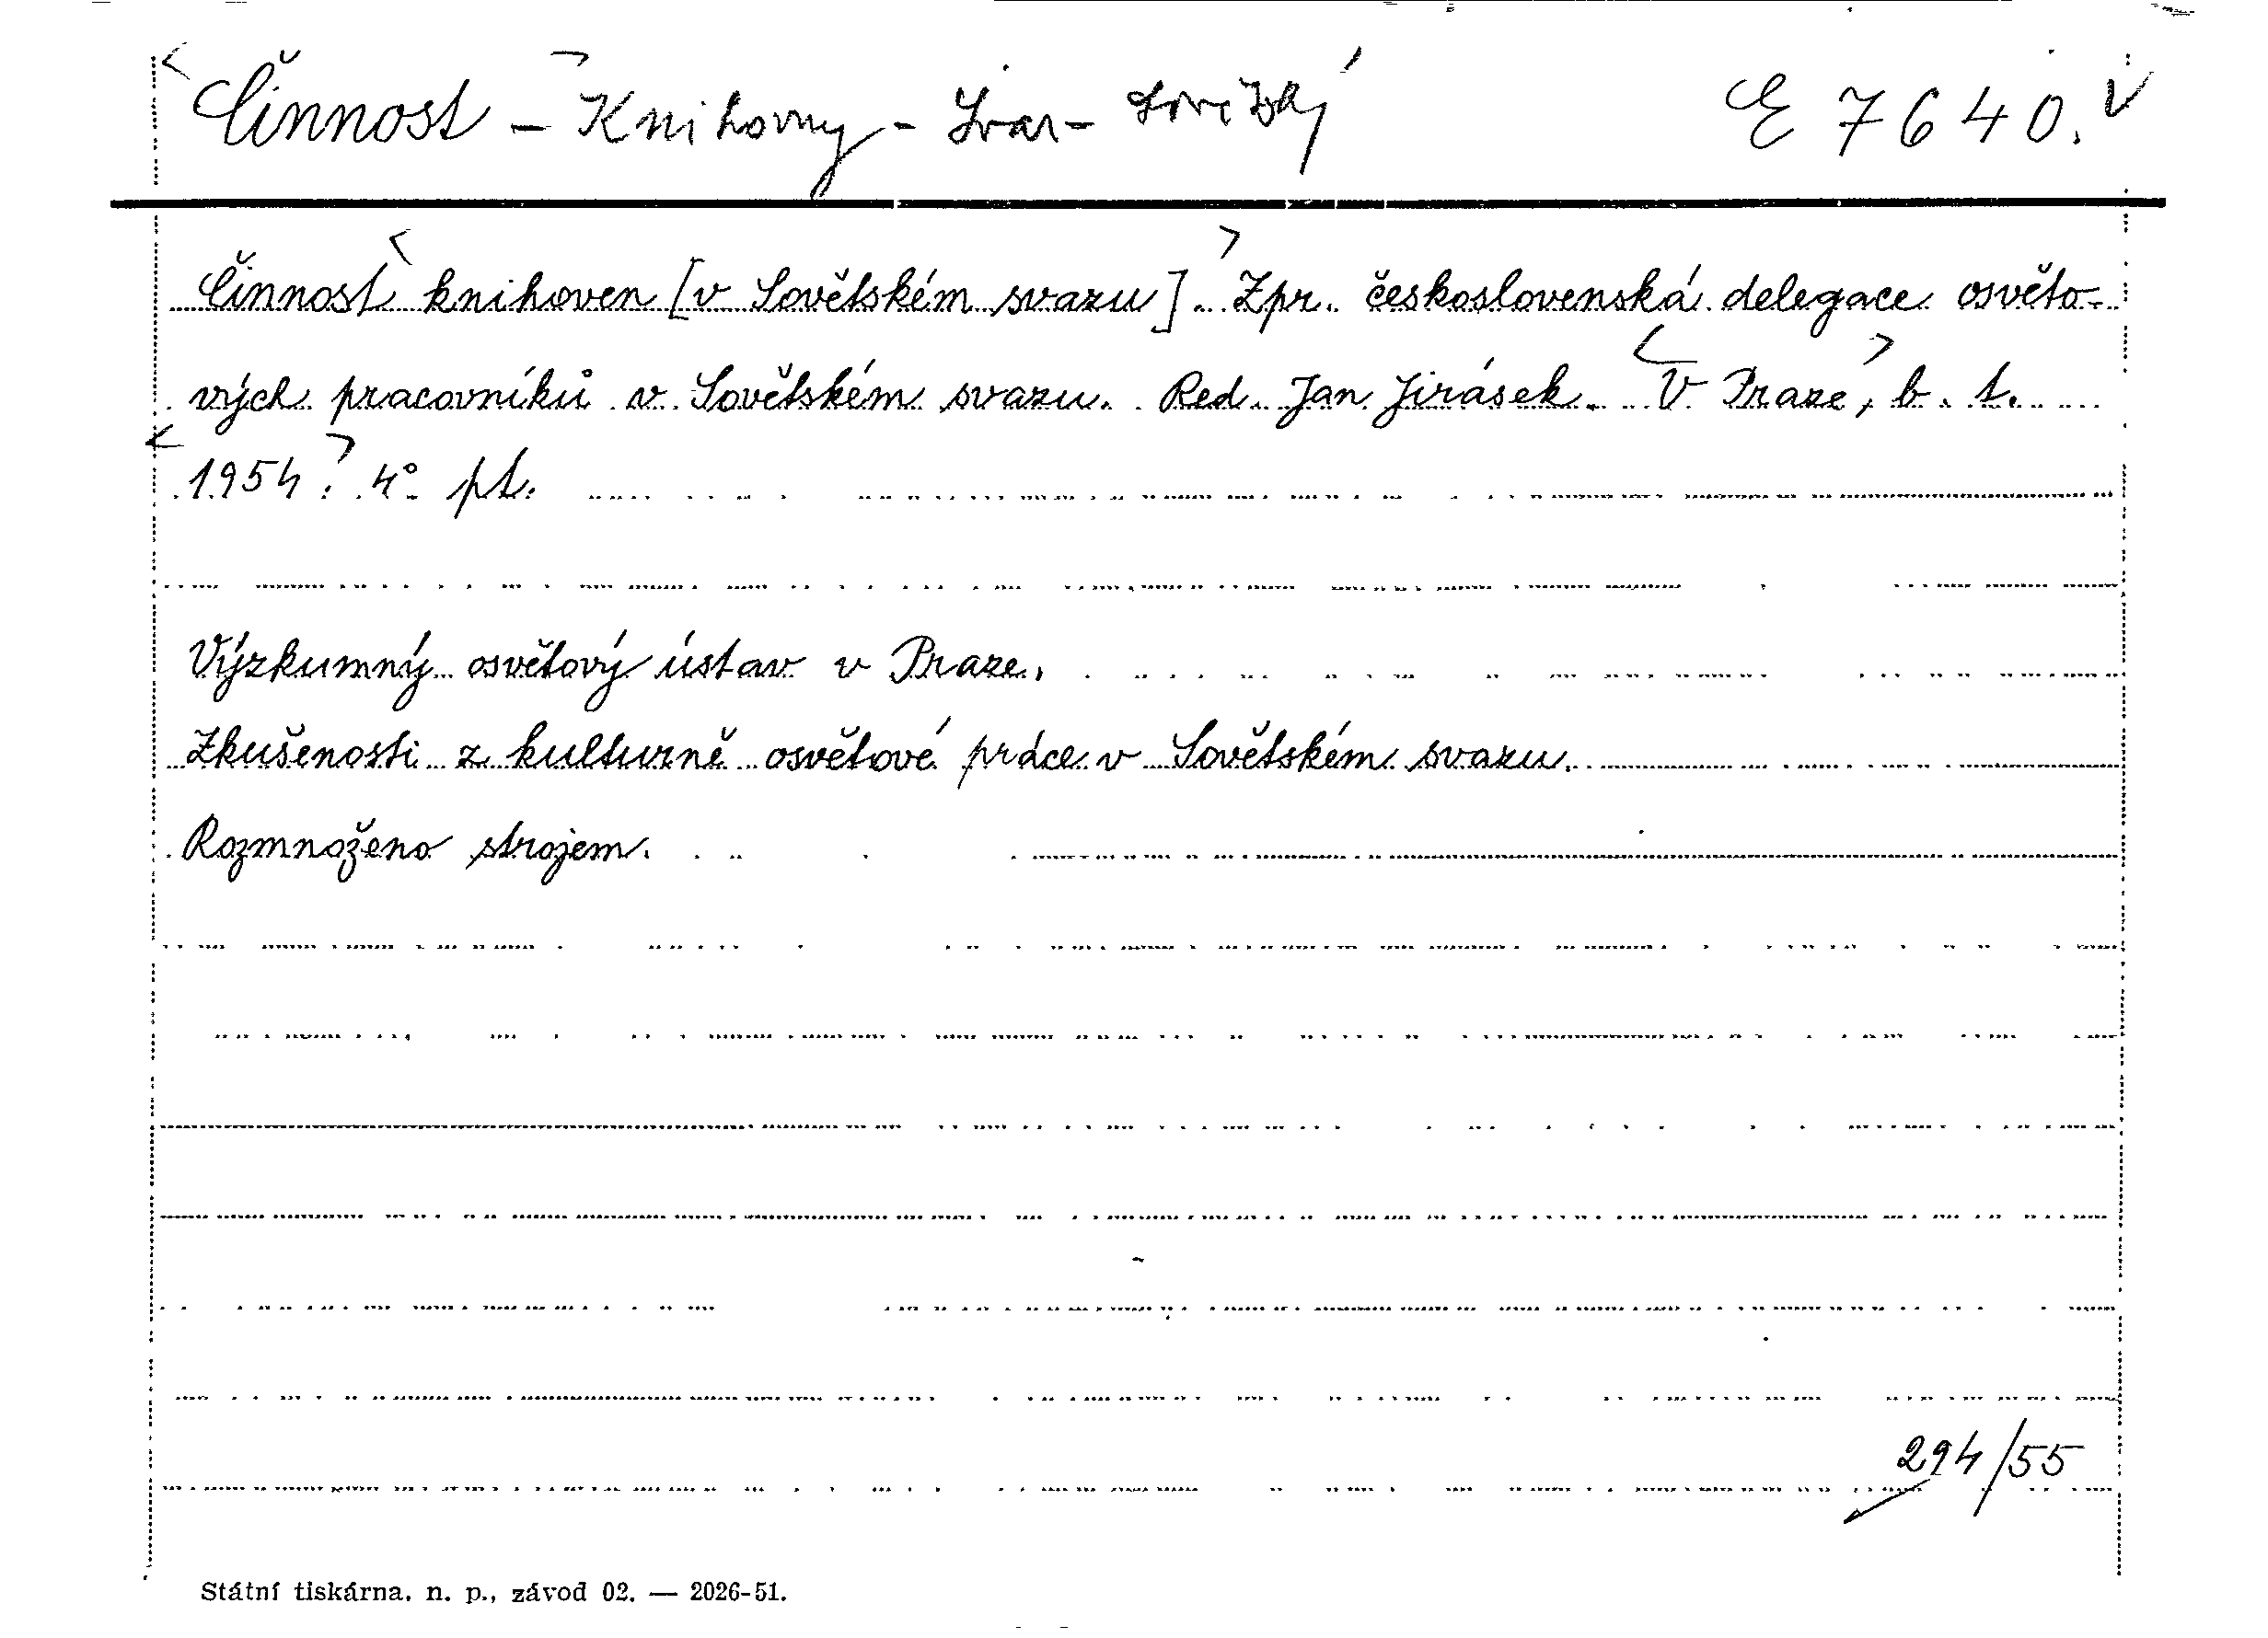 Činnost - Knihovny - Svaz - Sovětský E 7640.
Činnost knihoven [v Sovětském svazu]. Zpr. československá delegace osvěto-
vých pracovníků v Sovětském svazu. Red. Jan Jirásek. V Praze, b. t.
1954. 4° pt.
Výzkumný osvětový ústav v Praze.
Zkušenosti z kulturně osvětové práce v Sovětském svazu.
Rozmnoženo strojem.
294/55
Státní tiskárna, n. p., závod 02. — 2026-51.